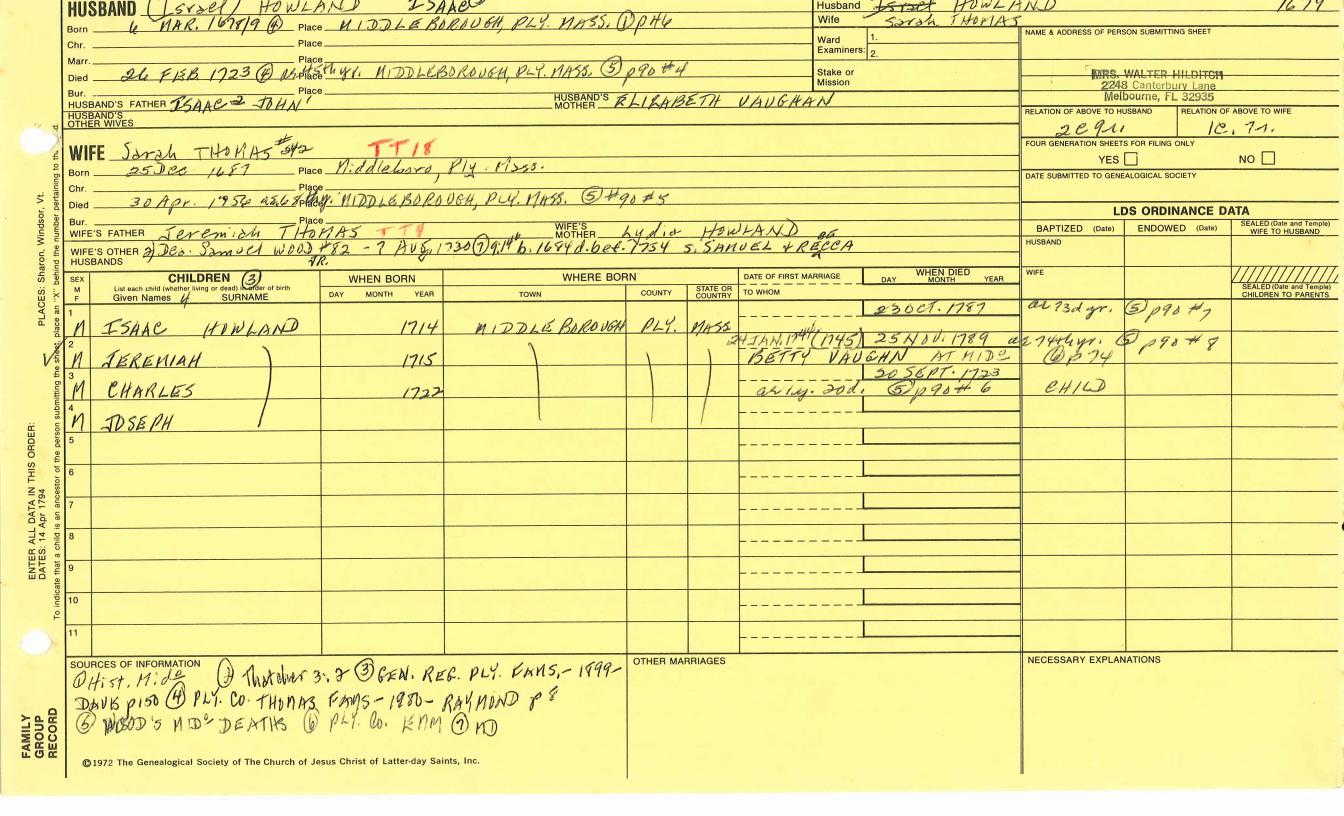 HUSBAND (Israel) HOWLAND ISAAC
Husband Israel HOWLAND 1679
Born 6 MAR. 1678/9 ④ Place MIDDLEBOROUGH, PLY. MASS. ① pH6
Wife Sarah THOMAS
Chr. Place
Ward Examiners: 1. 2.
NAME & ADDRESS OF PERSON SUBMITTING SHEET
Marr. Place
Died 26 FEB 1723 Place MIDDLEBOROUGH, PLY. MASS. ⑤ p90 #4
Stake or Mission
MRS. WALTER HILDITCH
2248 Canterbury Lane
Melbourne, FL 32935
Bur.
HUSBAND'S FATHER ISAAC 2 JOHN 1 HUSBAND'S MOTHER ELIZABETH VAUGHAN
HUSBAND'S OTHER WIVES
RELATION OF ABOVE TO HUSBAND RELATION OF ABOVE TO WIFE
FOUR GENERATION SHEETS FOR FILING ONLY
YES NO
WIFE Sarah THOMAS TT18
Born 25 Dec 1687 Place Middleboro, Ply. Mass.
Chr. Place
DATE SUBMITTED TO GENEALOGICAL SOCIETY
Died 30 Apr. 1756 Place MIDDLEBOROUGH, PLY. MASS. ⑤ #90 #5
Bur. Place
LDS ORDINANCE DATA
WIFE'S FATHER Jeremiah THOMAS TT9 WIFE'S MOTHER Lydia HOWLAND
BAPTIZED (Date) ENDOWED (Date) SEALED (Date and Temple) WIFE TO HUSBAND
WIFE'S OTHER HUSBANDS 2) Deo. Samuel WOOD #82 - 7 Aug. 1730 ⑦ b. 1684 d. bet. 1754 s. SAMUEL & REBECCA
JR.
HUSBAND
WIFE
SEALED (Date and Temple) CHILDREN TO PARENTS
SEX M F CHILDREN ③ WHEN BORN WHERE BORN DATE OF FIRST MARRIAGE WHEN DIED
List each child (whether living or dead) in order of birth
Given Names 4 SURNAME DAY MONTH YEAR TOWN COUNTY STATE OR COUNTRY TO WHOM DAY MONTH YEAR
1 M ISAAC HOWLAND 1714 MIDDLEBOROUGH PLY. MASS 23 OCT. 1787 ae 73d yr. ⑤ p90 #7
2 M JEREMIAH 1715 24 JAN. 1744/(1745) 25 NOV. 1789 ae 74th yr. ⑤ p90 #8
BETTY VAUGHN AT MIDO ⑥ p74
3 M CHARLES 1722 20 SEPT. 1723
ae 1y. 20d. ⑤ p90 #6 CHILD
4 M JOSEPH
5
6
7
8
9
10
11
SOURCES OF INFORMATION OTHER MARRIAGES NECESSARY EXPLANATIONS
① Hist. Mido ② Thatcher 3:2 ③ GEN. REG. PLY. FAMS. - 1899 -
DAVIS p150 ④ PLY. CO. THOMAS FAMS - 1980 - RAYMOND p 8
⑤ WOOD'S MIDO DEATHS ⑥ PLY. CO. ⑦ MD
©1972 The Genealogical Society of The Church of Jesus Christ of Latter-day Saints, Inc.
FAMILY GROUP RECORD
ENTER ALL DATA IN THIS ORDER:
DATES: 14 Apr 1794
PLACES: Sharon, Windsor, Vt.
To indicate that a child is an ancestor of the person submitting the sheet, place an "X" behind the number pertaining to th